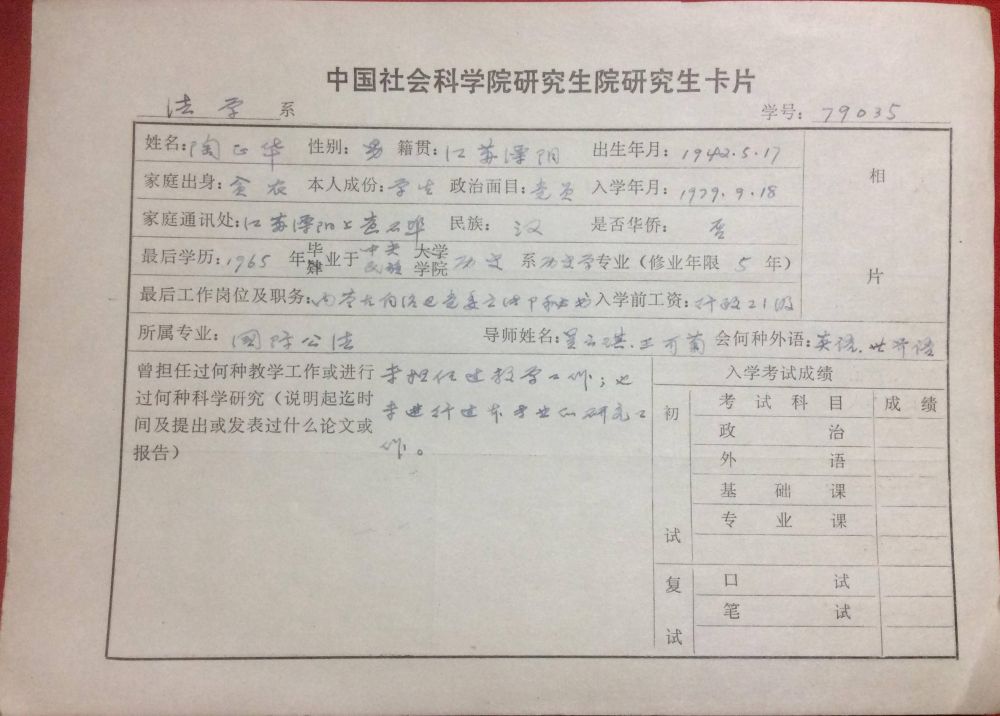 中国社会科学院研究生院研究生卡片
法学系 学号：79035
姓名：陶正华 性别：男 籍贯：江苏溧阳 出生年月：1942.5.17
家庭出身：贫农 本人成份：学生 政治面目：党员 入学年月：1979.9.18
家庭通讯处：江苏溧阳上 民族：汉 是否华侨：否
最后学历：1965年毕肄业于中央民族大学学院历史系历史学专业（修业年限5年）
最后工作岗位及职务：内蒙 党委 秘书 入学前工资：行政21级
所属专业：国际公法 导师姓名： 王可菊 会何种外语：英语、世界语
曾担任过何种教学工作或进行 未担任过教学工作；也
过何种科学研究（说明起迄时 未进行过本专业的研究工
间及提出或发表过什么论文或 作。
报告）
相
片
入学考试成绩
初试
考试科目 成绩
政治
外语
基础课
专业课
复试
口试
笔试